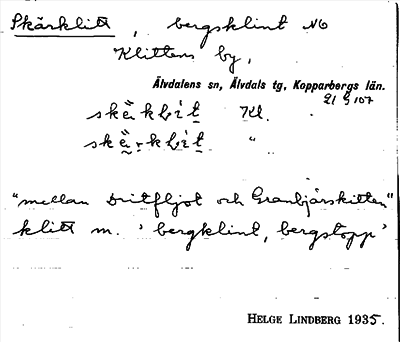 Skärklitt, bergsklint NO
Klittens by,
Älvdalens sn, Älvdals tg, Kopparbergs län.
21 G 107
Kl.
"
"mellan Dritfljot och Granbjärsklitten"
klitt m. 'bergklint, bergstopp'
HELGE LINDBERG 1935.